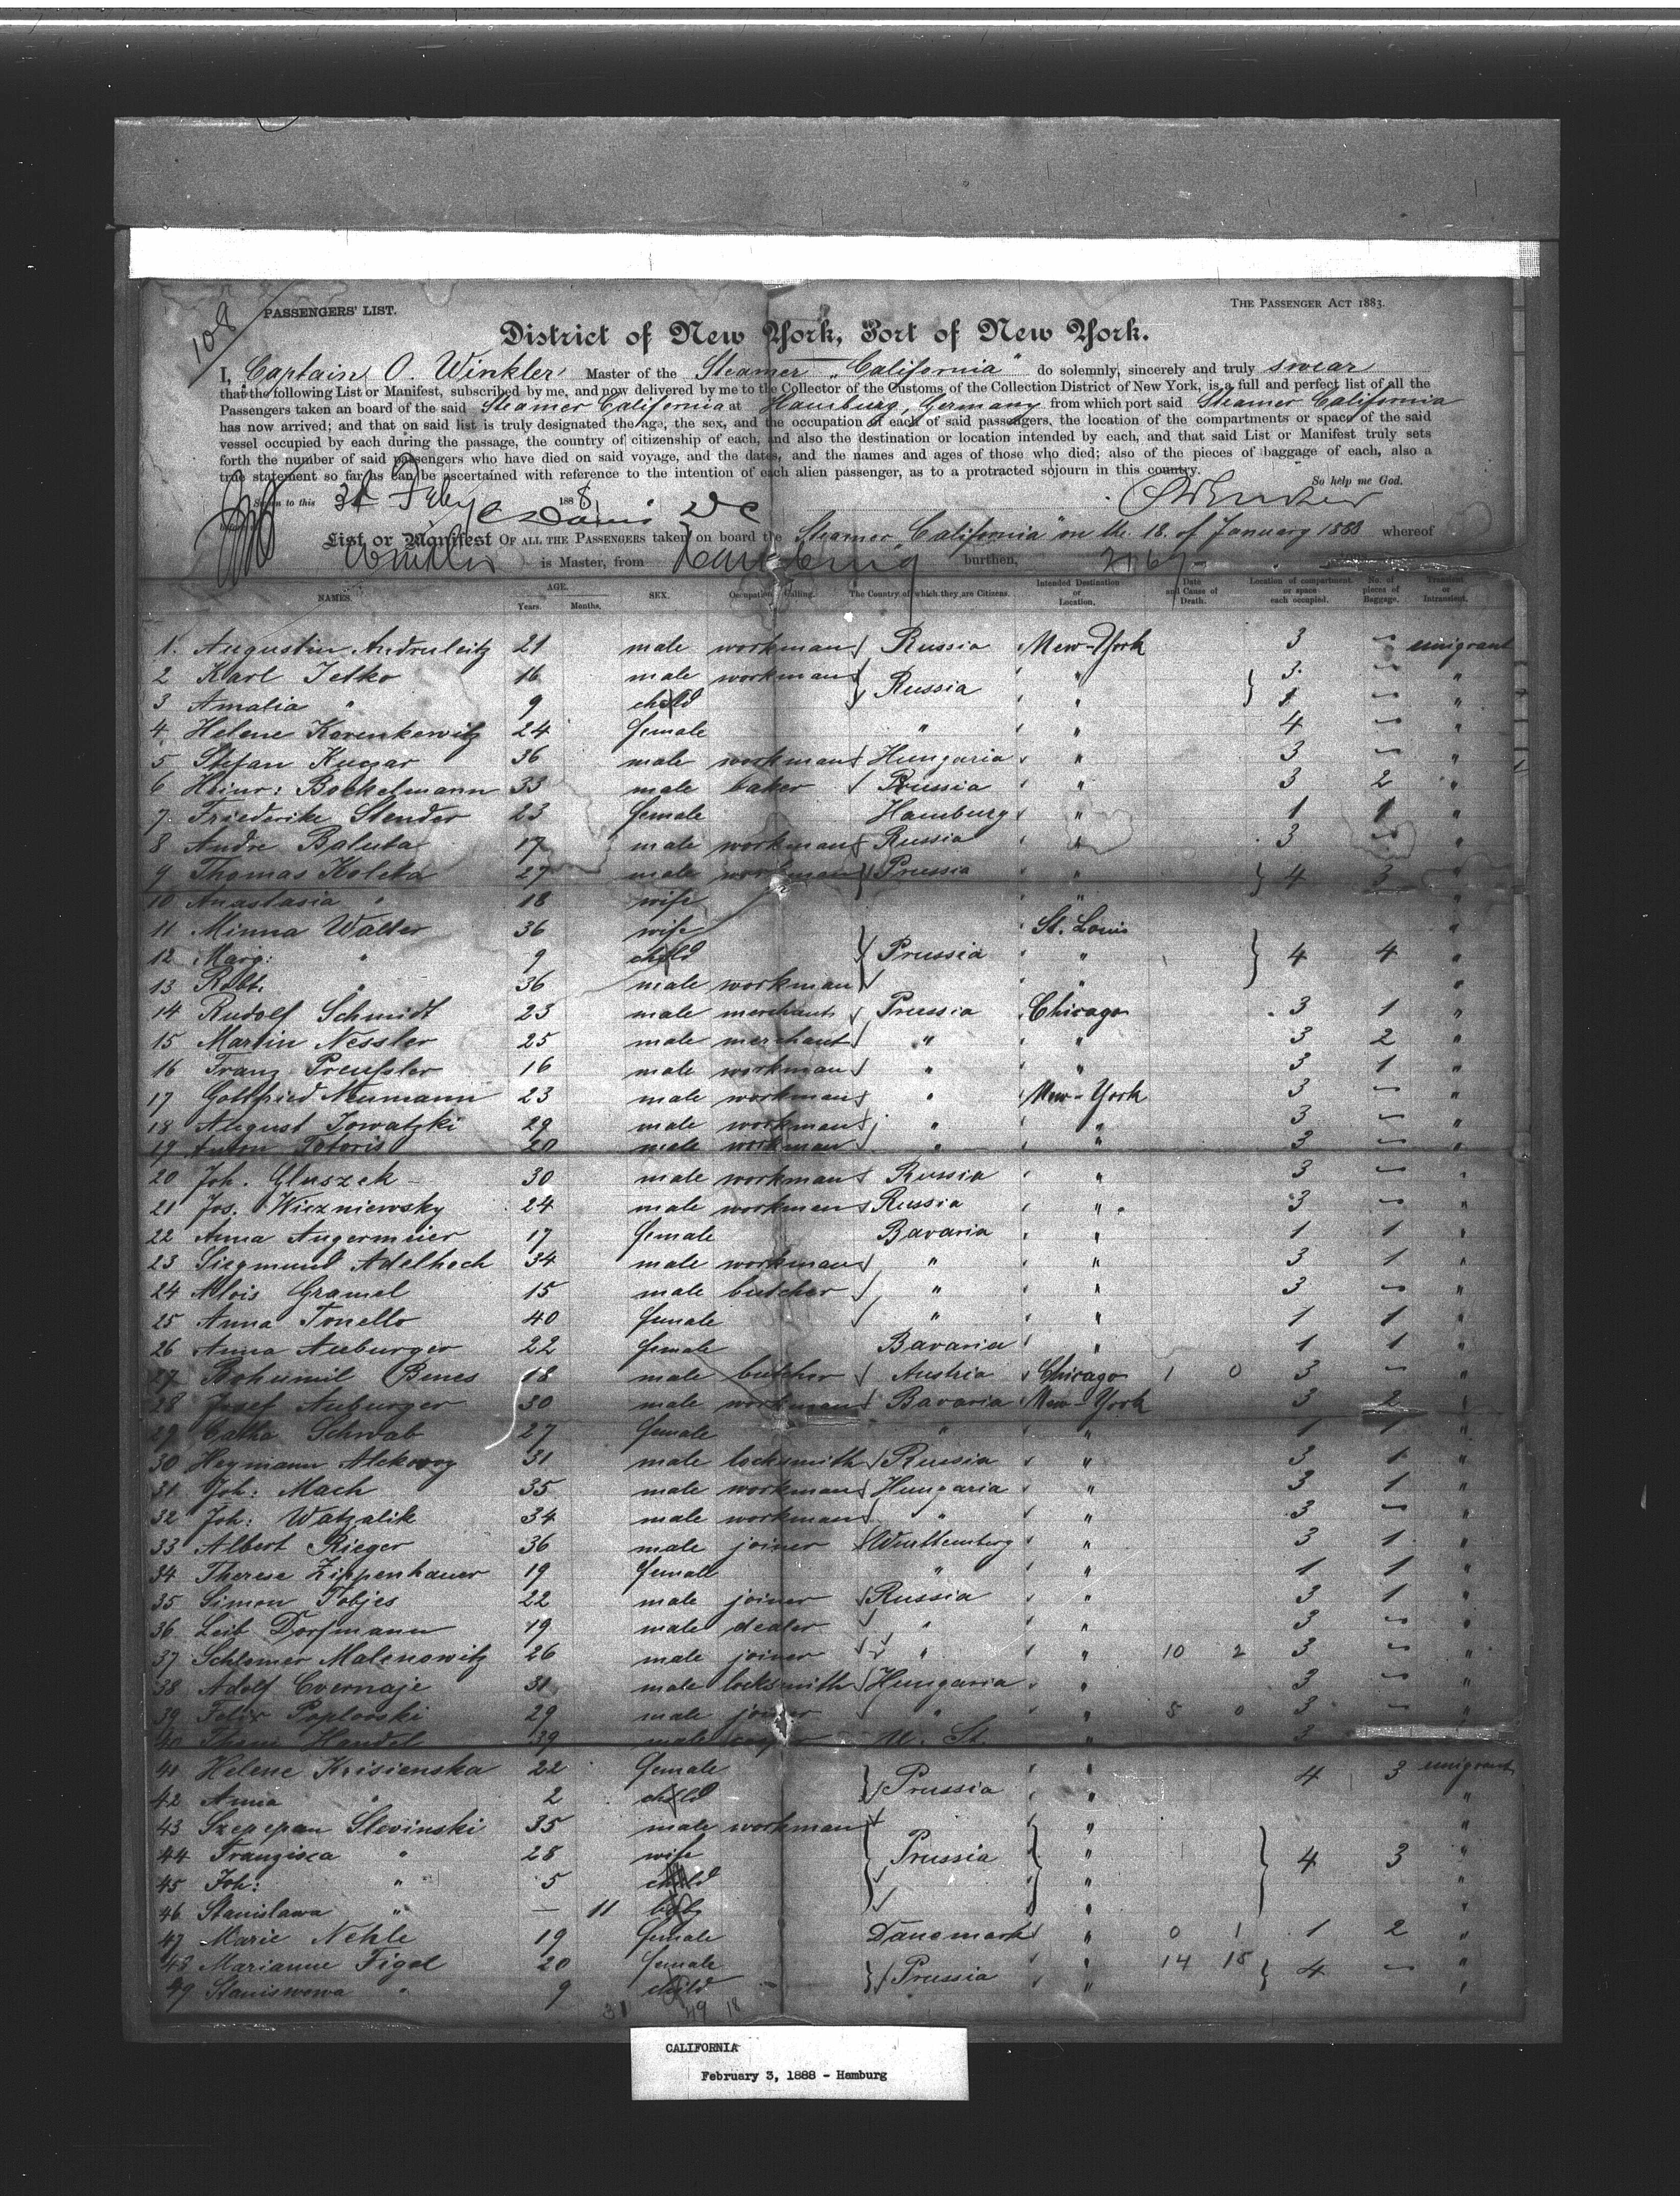 108
PASSENGERS' LIST.
THE PASSENGER ACT 1883.
District of New York, Port of New York.
I, Captain O. Winkler Master of the Steamer "California" do solemnly, sincerely and truly swear
that the following List or Manifest, subscribed by me, and now delivered by me to the Collector of the Customs of the Collection District of New York, is a full and perfect list of all the
Passengers taken an board of the said Steamer California at Hamburg, Germany from which port said Steamer California
has now arrived; and that on said list is truly designated the age, the sex, and the occupation of each of said passengers, the location of the compartments or space of the said
vessel occupied by each during the passage, the country of citizenship of each, and also the destination or location intended by each, and that said List or Manifest truly sets
forth the number of said passengers who have died on said voyage, and the dates, and the names and ages of those who died; also of the pieces of baggage of each, also a
true statement so far as can be ascertained with reference to the intention of each alien passenger, as to a protracted sojourn in this country.
So help me God.
Sworn to this 3d Feby 1888
List or Manifest OF ALL THE PASSENGERS taken on board the Steamer "California" on the 18. of January 1888 whereof
Winkler is Master, from Hamburg burthen,
NAMES. AGE. Years. Months. SEX. Occupation Calling. The Country of which they are Citizens. Intended Destination or Location. Date and Cause of Death. Location of compartment or space each occupied. No. of pieces of Baggage. Transient or Intransient.
1. Augustin Andruleitz 21 male workman Russia New-York 3 — emigrant
2 Karl Jetko 16 male workman " 3. — "
3 Amalia " 9 child Russia " 1 — "
4 Helene Korenkowitz 24 female " " 4 — "
5 Stefan Kuczar 36 male workman Hungaria " 3 — "
6 Heinr: Bockelmann 33 male baker Prussia " 3 2 "
7. Friederike Stender 23 female Hamburg " 1 1 "
8 Andre Baluta 17 male workman Russia " 3 — "
9 Thomas Koleta 27 male workman Prussia " 4 3 "
10 Anastasia " 18 wife " "
11 Minna Walter 36 wife St. Louis "
12 Marg: " 9 child Prussia " 4 4 "
13 Robt. " 36 male workman " "
14 Rudolf Schmidt 23 male merchant Prussia Chicago 3 1 "
15 Martin Nessler 25 male merchant " " 3 2 "
16 Franz Preußler 16 male workman " " 3 1 "
17 Gottfried Neumann 23 male workman " New-York 3 — "
18 August Jowatzki 29 male workman " " 3 — "
19 Anton Potoris 20 male workman " " 3 — "
20 Joh. Gluszek 30 male workman Russia " 3 — "
21 Jos. Wiezniewsky 24 male workman Russia " 3 — "
22 Anna Augermeier 17 female Bavaria " 1 1 "
23 Siegmund Adelhoch 34 male workman " " 3 1 "
24 Alois Gramel 15 male butcher " " 3 — "
25 Anna Tonello 40 female " " 1 1 "
26 Anna Auburger 22 female Bavaria " 1 1 "
27 Bohumil Benes 18 male butcher Austria Chicago 1 0 3 — "
28 Josef Auburger 30 male workman Bavaria New-York 3 2 "
29 Catha Schwab 27 female " " 1 1 "
30 Heymann 31 male locksmith Russia " 3 1 "
31 Joh: Mach 35 male workman Hungaria " 3 1 "
32 Joh: Watzalik 34 male workman " " 3 — "
33 Albert Rieger 36 male joiner Württemberg " 3 1 "
34 Therese Zippenhauer 19 female " " 1 1 "
35 Simon Tobjes 22 male joiner Russia " 3 1 "
36 Leib Dorfmann 19 male dealer " " 3 — "
37 Schlomer Malenowitz 26 male joiner " " 10 2 3 — "
38 Adolf Cvernaje 31 male locksmith Hungaria " 3 — "
39 Felix Poplovski 29 male joiner " " 5 0 3 — "
40 Handel 39 male U. St. " 3
41 Helene Krisienska 22 female " 4 3 emigrant
42 Anna " 2 child Prussia " "
43 Szepepan Slovinski 35 male workman " "
44 Franzisca " 28 wife Prussia " 4 3 "
45 Joh: " 5 child " "
46 Stanislawa " — 11 baby " "
47 Marie Nehle 19 female Danemark " 0 1 1 2 "
48 Marianne Figel 20 female " 14 15 4 — "
49 Staniswowa " 9 child Prussia " "
31 49 18
CALIFORNIA
February 3, 1888 - Hamburg